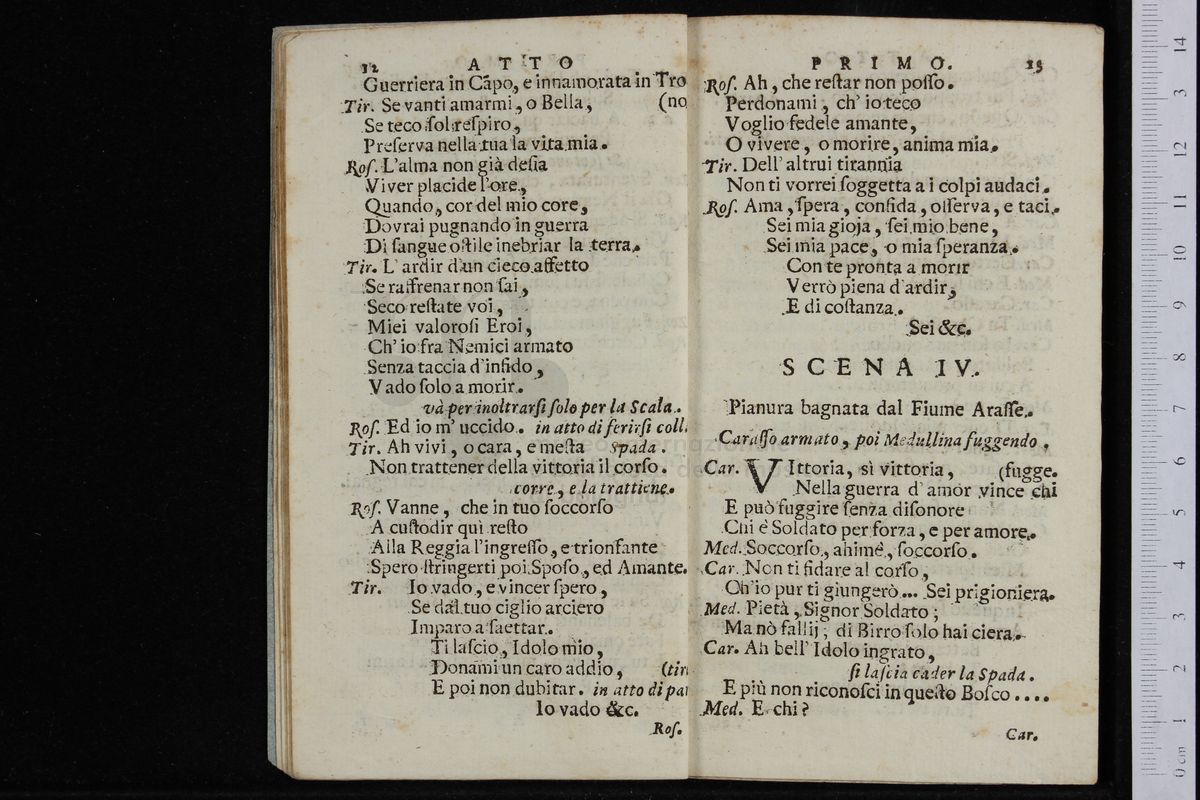 12 ATTO
Guerriera in Cãpo, e innamorata in Tro
Tir. Se vanti amarmi, o Bella, (no
Se teco sol respiro,
Preserva nella tua la vita mia.
Ros. L'alma non già desia
Viver placide l'ore,
Quando, cor del mio core,
Dovrai pugnando in guerra
Di sangue ostile inebriar la terra.
Tir. L' ardir d'un cieco affetto
Se raffrenar non sai,
Seco restate voi,
Miei valorosi Eroi,
Ch' io fra Nemici armato
Senza taccia d'infido,
Vado solo a morir.
và per inoltrarsi solo per la Scala.
Ros. Ed io m' uccido. in atto di ferirsi coll.
Tir. Ah vivi, o cara, e mesta Spada.
Non trattener della vittoria il corso.
corre, e la trattiene.
Ros. Vanne, che in tuo soccorso
A custodir quì resto
Alla Reggia l'ingresso, e trionfante
Spero stringerti poi Sposo, ed Amante.
Tir. Io vado, e vincer spero,
Se dal tuo ciglio arciero
Imparo a saettar.
Ti lascio, Idolo mio,
Donami un caro addio, (tir
E poi non dubitar. in atto di par
Io vado &c.
Ros.
PRIMO. 13
Ros. Ah, che restar non posso.
Perdonami, ch' io teco
Voglio fedele amante,
O vivere, o morire, anima mia.
Tir. Dell' altrui tirannìa
Non ti vorrei soggetta a i colpi audaci.
Ros. Ama, spera, confida, osserva, e taci.
Sei mia gioja, sei mio bene,
Sei mia pace, o mia speranza.
Con te pronta a morir
Verrò piena d'ardir,
E di costanza.
Sei &c.
SCENA IV.
Pianura bagnata dal Fiume Arasse.
Carasso armato, poi Medullina fuggendo.
Car. VIttoria, sì vittoria, (fugge.
Nella guerra d' amor vince chi
E può fuggire senza disonore
Chi è Soldato per forza, e per amore.
Med. Soccorso, ahimè, soccorso.
Car. Non ti fidare al corso,
Ch'io pur ti giungerò... Sei prigioniera.
Med. Pietà, Signor Soldato;
Ma nò fallij; di Birro solo hai ciera.
Car. Ah bell' Idolo ingrato,
si lascia cader la Spada.
E più non riconosci in questo Bosco....
Med. E chi?
Car.